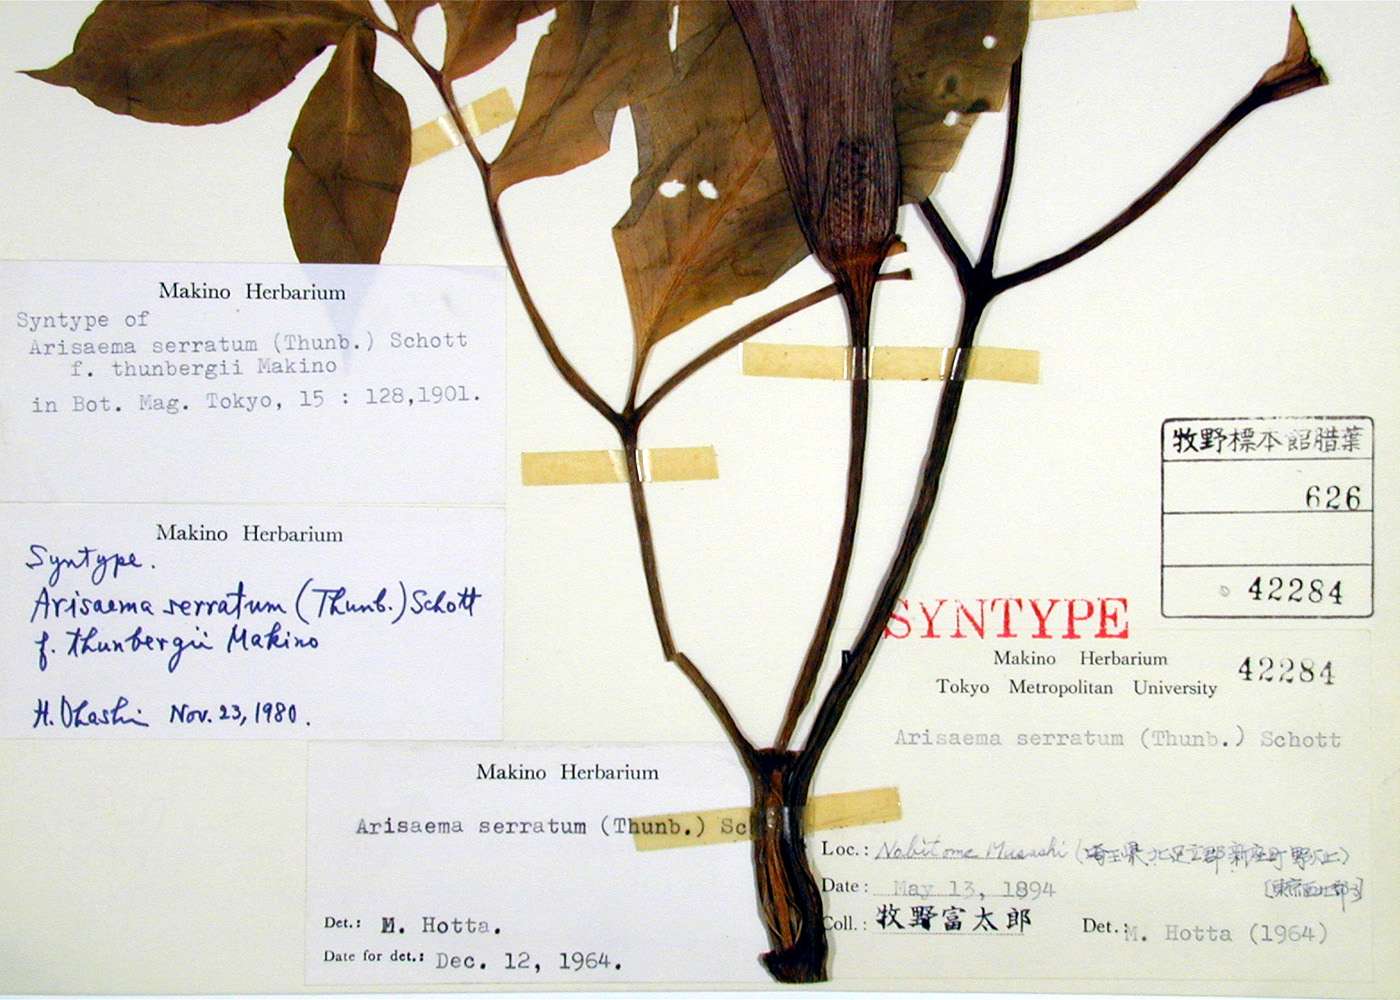 Makino Herbarium
Syntype of
Arisaema serratum (Thunb.) Schott
f. thunbergii Makino
in Bot. Mag. Tokyo, 15 : 128,1901.
Makino Herbarium
Syntype.
Arisaema serratum (Thunb.) Schott
f. thunbergii Makino
H. Ohashi Nov. 23, 1980.
Makino Herbarium
Arisaema serratum (Thunb.) Sc
Det.: M. Hotta.
Date for det.: Dec. 12, 1964.
牧野標本館腊葉
626
42284
SYNTYPE
Makino Herbarium
Tokyo Metropolitan University
42284
Arisaema serratum (Thunb.) Schott
Loc.: Nobitome Musashi (埼玉県北足立郡新座町野火止)
Date: May 13, 1894
Coll.: 牧野富太郎 Det.: M. Hotta (1964)